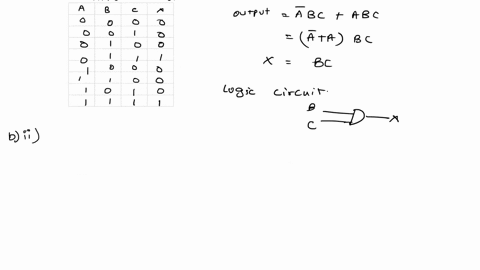 A B C X
0 0 0 0
0 0 1 0
0 1 0 0
0 1 1 1
1 0 0 0
1 1 0 0
1 0 1 0
1 1 1 1
output = A̅BC + ABC
= (A̅+A) BC
X = BC
Logic circuit.
B
C
X
b)ii)